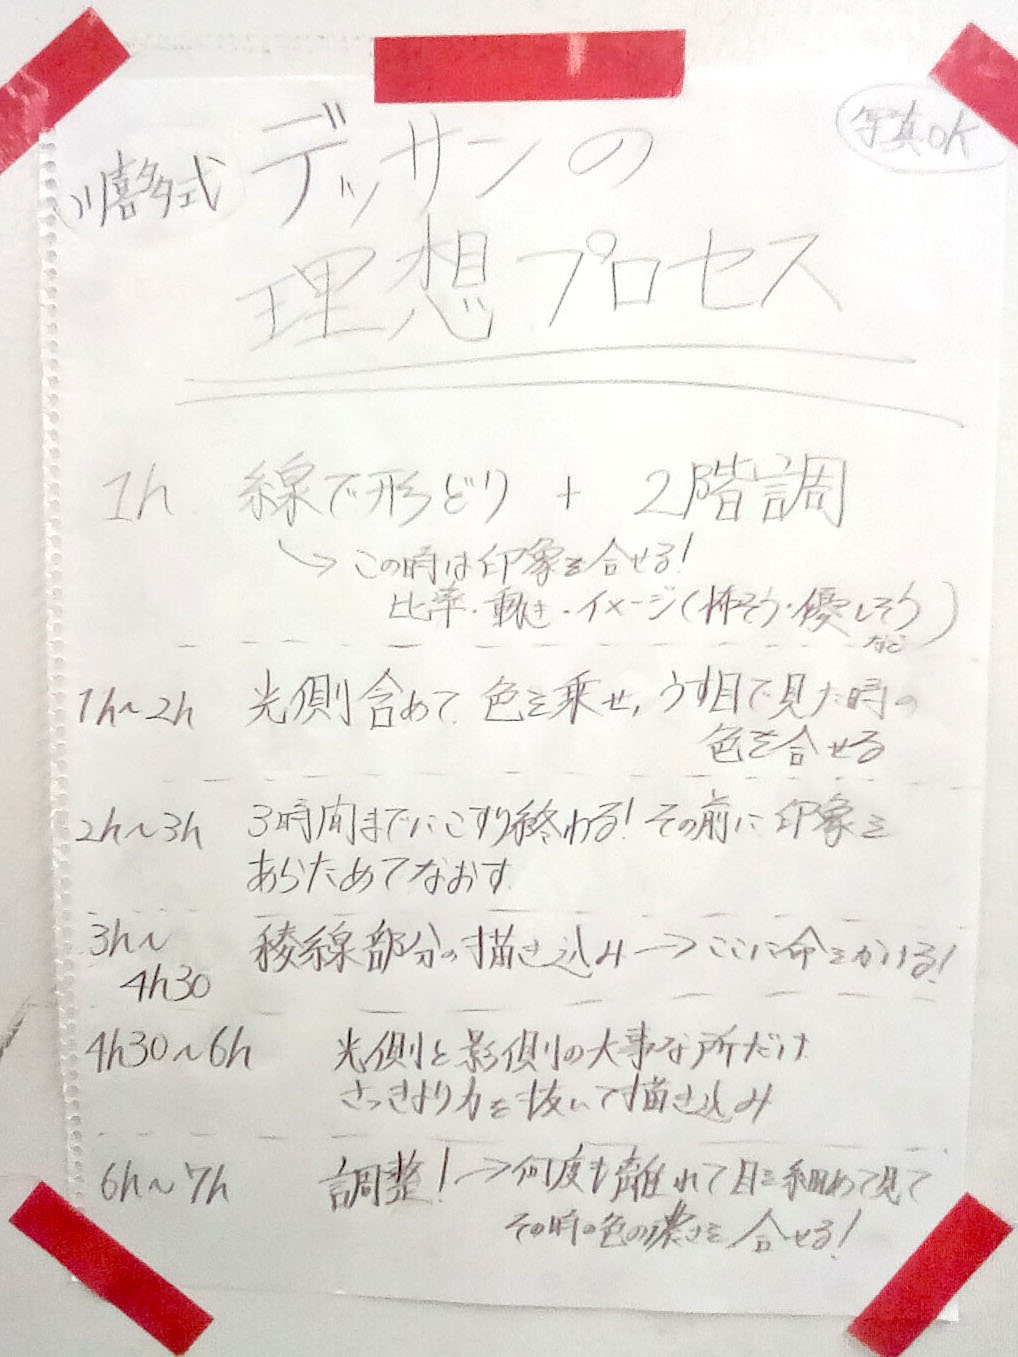 川喜多式 デッサンの
写真OK
理想プロセス
1h 線で形どり + 2階調
↳この時は印象を合せる!
比率・動き・イメージ(怖そう・優しそう
など)
1h~2h 光側含めて色を乗せ,うす目で見た時の
色を合せる
2h~3h 3時間までにこすり終わる!その前に印象を
あらためてなおす.
3h~ 稜線部分の描き込み→ここに命をかける!
4h30
4h30~6h 光側と影側の大事な所だけ
さっきより力を抜いて描き込み
6h~7h 調整!→何度も離れて目を細めて見て
その時の色の濃さを合せる!